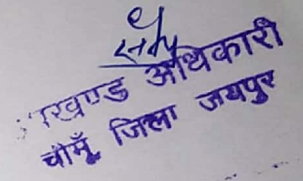 खण्ड अधिकारी
चौमूँ, जिला जयपुर